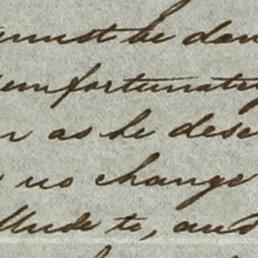 must be don
unfortunately
as he dese
no change
llude to, and